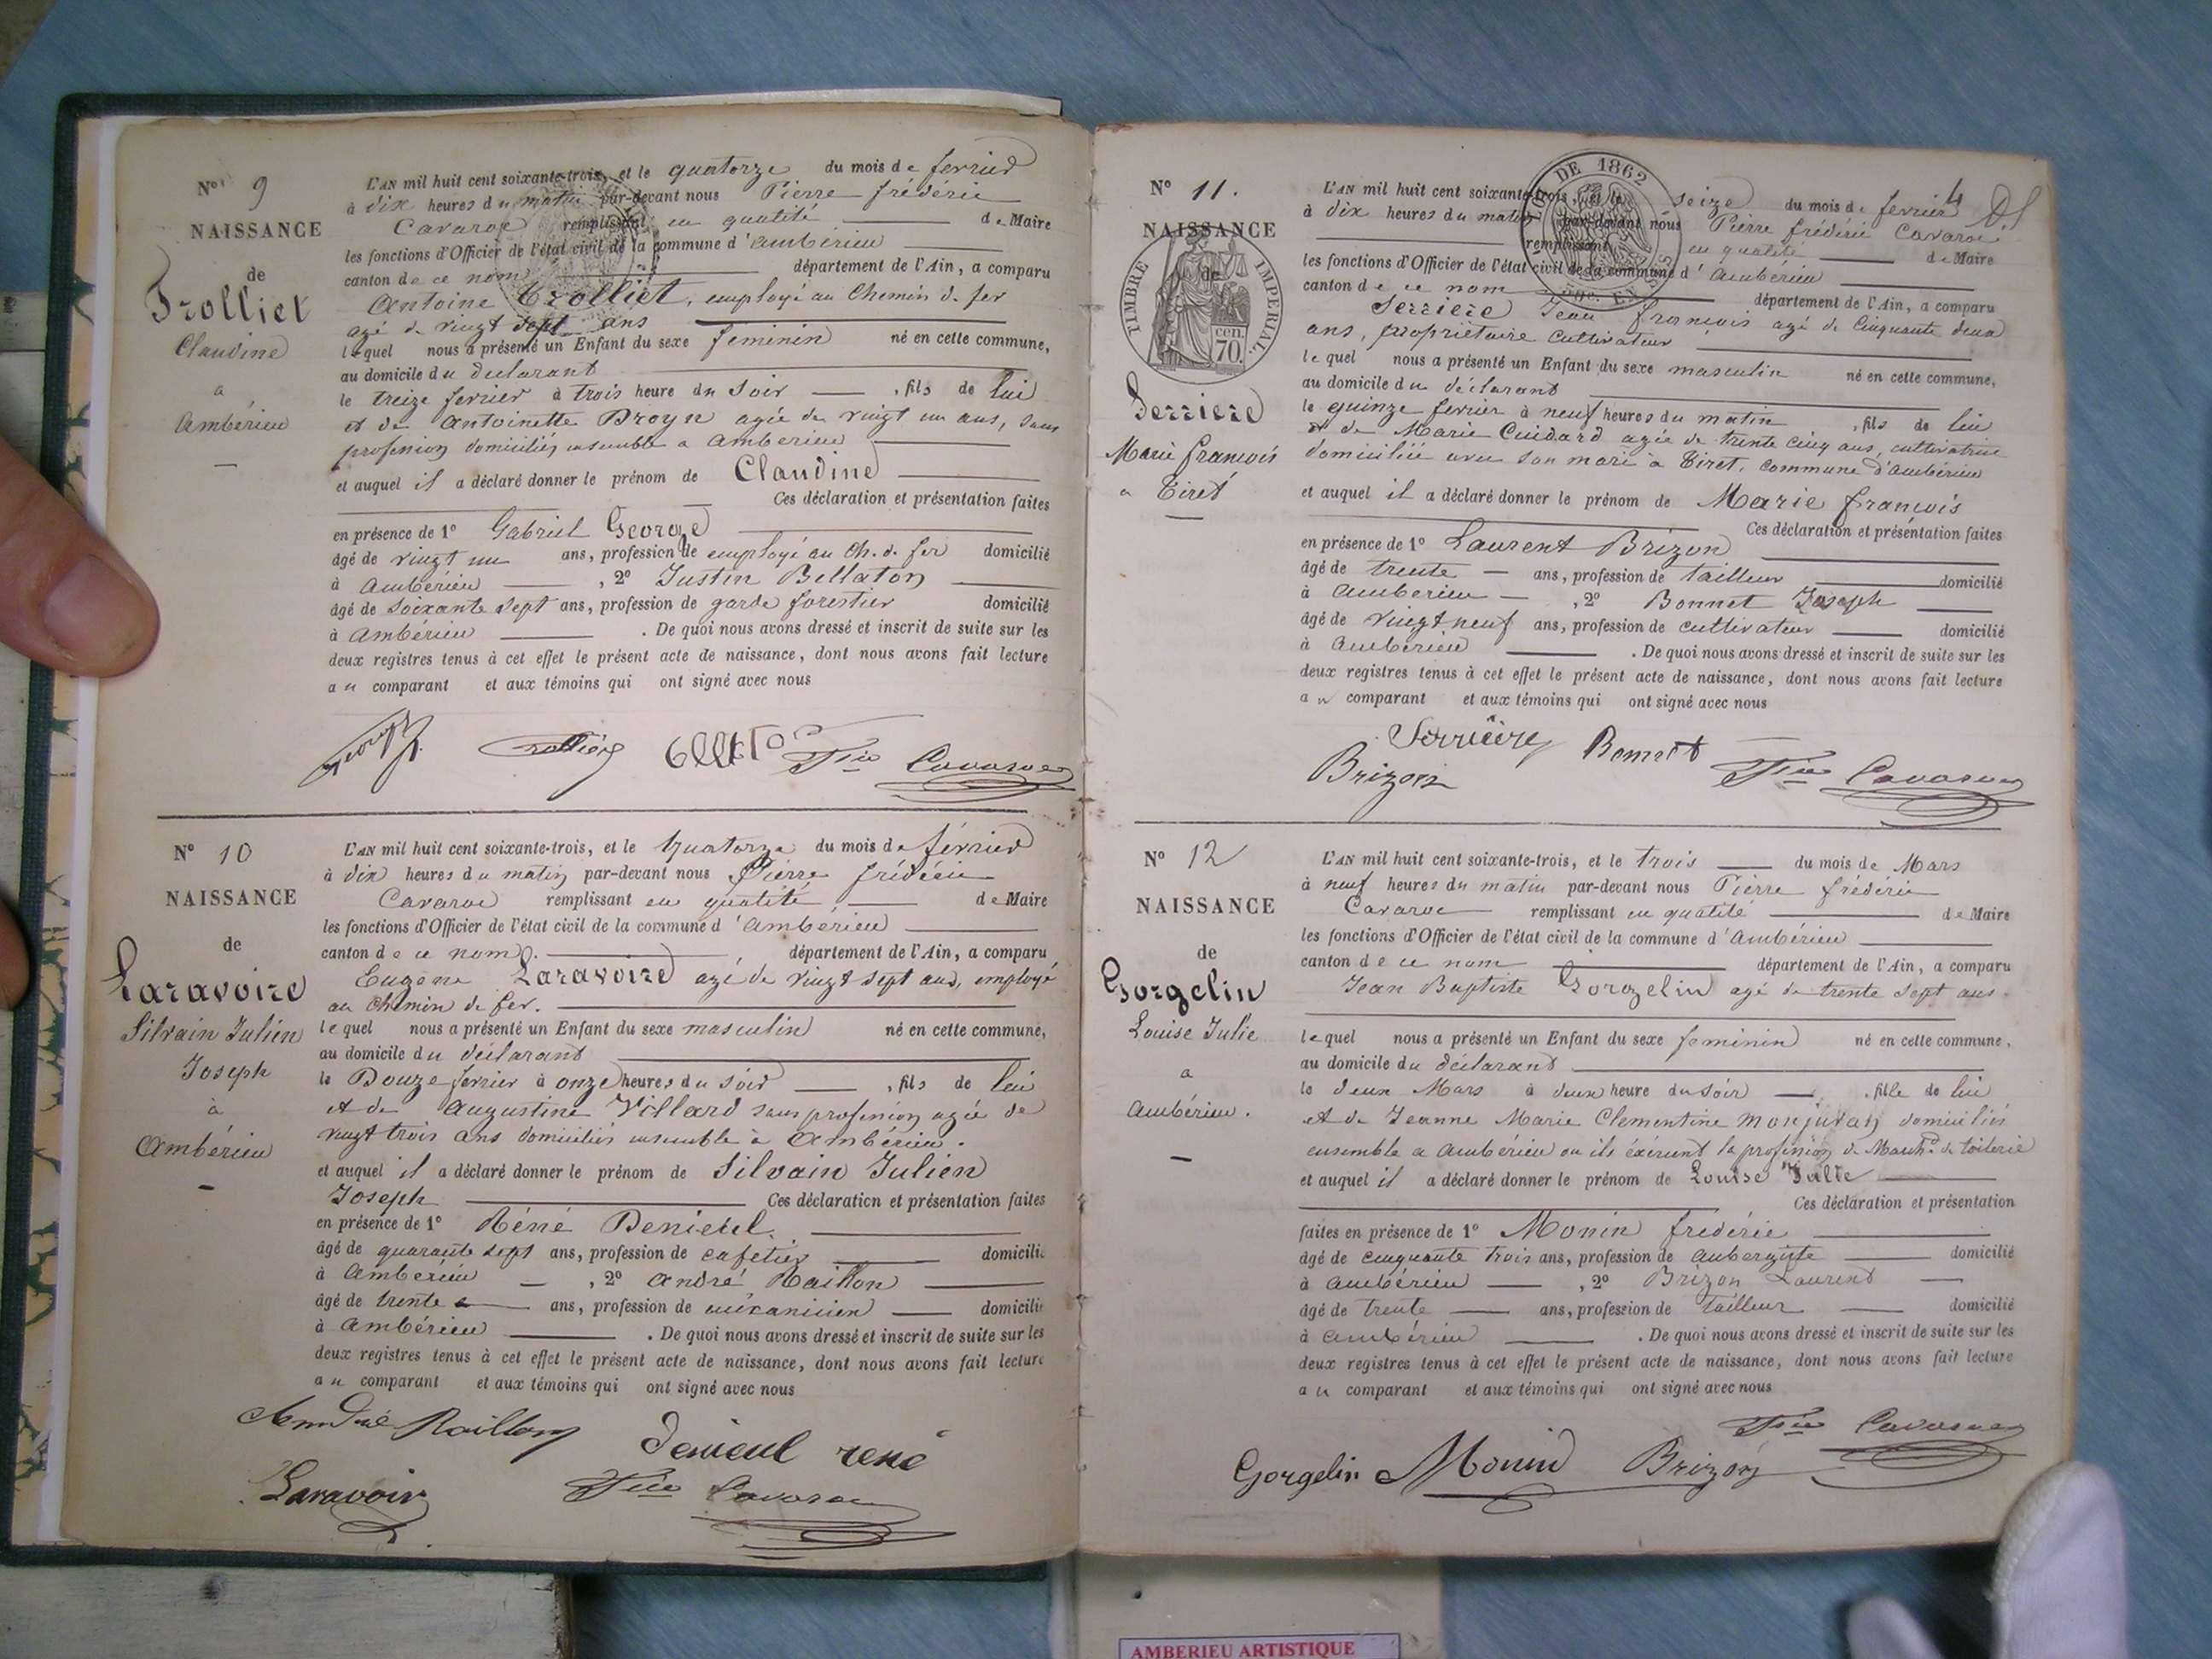 N° 9
NAISSANCE
de
Trolliet
Claudine
a
Ambérieu
L'AN mil huit cent soixante-trois, et le quatorze du mois de fevrier
à dix heures du matin par-devant nous Pierre frédéric
Cavaroc remplissant en qualité de Maire
les fonctions d'Officier de l'état civil de la commune d'ambérieu
canton de ce nom département de l'Ain, a comparu
Antoine Trolliet, employé au Chemin de fer
agé de vingt sept ans
lequel nous a présenté un Enfant du sexe feminin né en cette commune,
au domicile du declarant
le treize fevrier à trois heure du Soir , fils de lui
et de Antoinette Droyn agée de vingt un ans, sans
profession domiciliés ensemble a Amberieu
et auquel il a déclaré donner le prénom de Claudine
Ces déclaration et présentation faites
en présence de 1° Gabriel George
âgé de vingt un ans, profession de employé au Ch. de fer domicilié
à Ambérieu , 2° Justin Bellaton
âgé de soixante sept ans, profession de garde forestier domicilié
à Ambérieu . De quoi nous avons dressé et inscrit de suite sur les
deux registres tenus à cet effet le présent acte de naissance, dont nous avons fait lecture
au comparant et aux témoins qui ont signé avec nous
Cavaroc
N° 10
NAISSANCE
de
Laravoire
Silvain Julien
Joseph
à
Ambérieu
L'AN mil huit cent soixante-trois, et le Quatorze du mois de février
à dix heures du matin par-devant nous Pierre frédéric
Cavaroc remplissant en qualité de Maire
les fonctions d'Officier de l'état civil de la commune d'ambérieu
canton de ce nom. département de l'Ain, a comparu
Eugène Laravoire agé de vingt sept ans, employé
au Chemin de fer.
lequel nous a présenté un Enfant du sexe masculin né en cette commune,
au domicile du déclarant
le Douze fevrier à onze heures du soir , fils de lui
et de Augustine Villard sans profession agée de
vingt trois ans domiciliés ensemble à Ambérieu.
et auquel il a déclaré donner le prénom de Silvain Julien
Joseph Ces déclaration et présentation faites
en présence de 1° Réné Denieul
âgé de quarante sept ans, profession de cafetier domicilié
à Ambérieu , 2° André Raillon
âgé de trente ans, profession de mécanicien domicilié
à Ambérieu . De quoi nous avons dressé et inscrit de suite sur les
deux registres tenus à cet effet le présent acte de naissance, dont nous avons fait lecture
au comparant et aux témoins qui ont signé avec nous
André Raillon denieul rené
Laravoire Cavaroc
4
N° 11.
NAISSANCE
de
TIMBRE IMPERIAL
70 cen.
Serriere
Marie francois
a Tiret
DE 1862
L'AN mil huit cent soixante-trois, et le seize du mois de fevrier
à dix heures du matin par-devant nous Pierre frédéric Cavaroc
remplissant en qualité de Maire
les fonctions d'Officier de l'état civil de la commune d'Ambérieu
canton de ce nom département de l'Ain, a comparu
Serriere Jean francois agé de Cinquante deux
ans, propriétaire cultivateur
lequel nous a présenté un Enfant du sexe masculin né en cette commune,
au domicile du déclarant
le quinze fevrier à neuf heures du matin , fils de lui
et de Marie Cuidard agée de trente cinq ans, cultivatrice
domiciliée avec son mari à Tiret, commune d'Ambérieu
et auquel il a déclaré donner le prénom de Marie francois
Ces déclaration et présentation faites
en présence de 1° Laurent Brizon
âgé de trente ans, profession de tailleur domicilié
à Amberieu , 2° Bonnet Joseph
âgé de vingt neuf ans, profession de cultivateur domicilié
à Ambérieu . De quoi nous avons dressé et inscrit de suite sur les
deux registres tenus à cet effet le présent acte de naissance, dont nous avons fait lecture
au comparant et aux témoins qui ont signé avec nous
Serriere Bonnet
Brizon Cavaroc
N° 12
NAISSANCE
de
Gorgelin
Louise Julie
a
Ambérieu.
L'AN mil huit cent soixante-trois, et le trois du mois de Mars
à neuf heures du matin par-devant nous Pierre frédéric
Cavaroc remplissant en qualité de Maire
les fonctions d'Officier de l'état civil de la commune d'Ambérieu
canton de ce nom département de l'Ain, a comparu
Jean Baptiste Gorgelin agé de trente sept ans.
lequel nous a présenté un Enfant du sexe feminin né en cette commune,
au domicile du déclarant
le deux Mars à deux heure du soir , fille de lui
et de Jeanne Marie Clementine Monjuvan domiciliés
ensemble a Ambérieu ou ils éxércent la profession de Marchd. de toilerie
et auquel il a déclaré donner le prénom de Louise Julie
Ces déclaration et présentation
faites en présence de 1° Monin frédéric
âgé de cinquante trois ans, profession de Aubergiste domicilié
à Ambérieu , 2° Brizon Laurent
âgé de trente ans, profession de tailleur domicilié
à Ambérieu . De quoi nous avons dressé et inscrit de suite sur les
deux registres tenus à cet effet le présent acte de naissance, dont nous avons fait lecture
au comparant et aux témoins qui ont signé avec nous
Cavaroc
Gorgelin Monin Brizon
AMBERIEU ARTISTIQUE